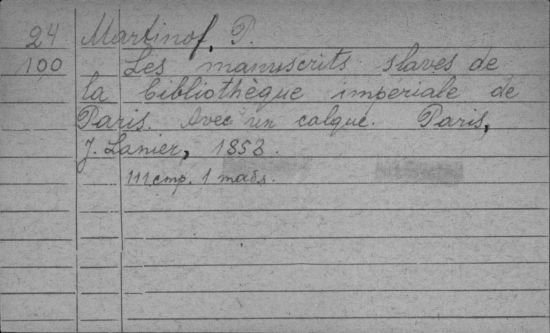 24 Martinof, P.
100 Les manuscrits slaves de
la bibliothèque imperiale de
Paris. Avec un calque. Paris,
J. Lanier, 1858.
111 стр. 1 табл.